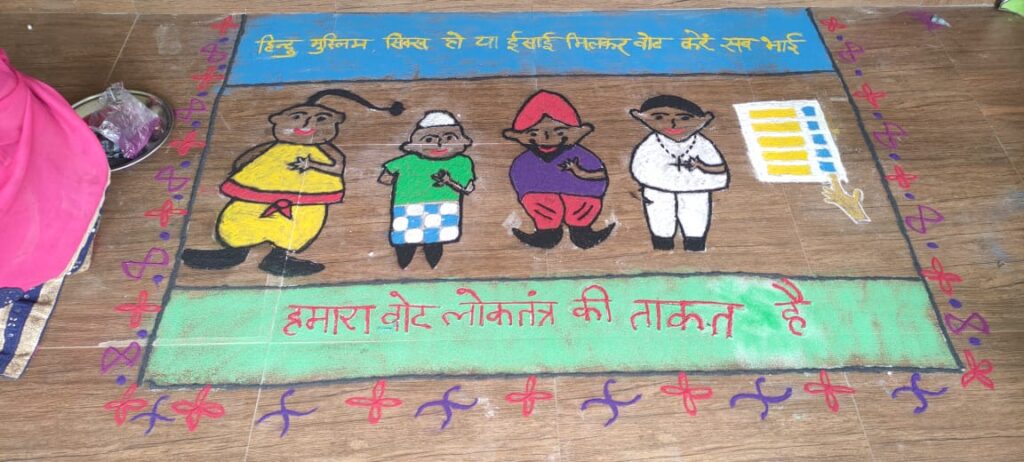 हिन्दु मुस्लिम सिक्ख हो या ईसाई मिलकर वोट करें सब भाई
हमारा वोट लोकतंत्र की ताकत है